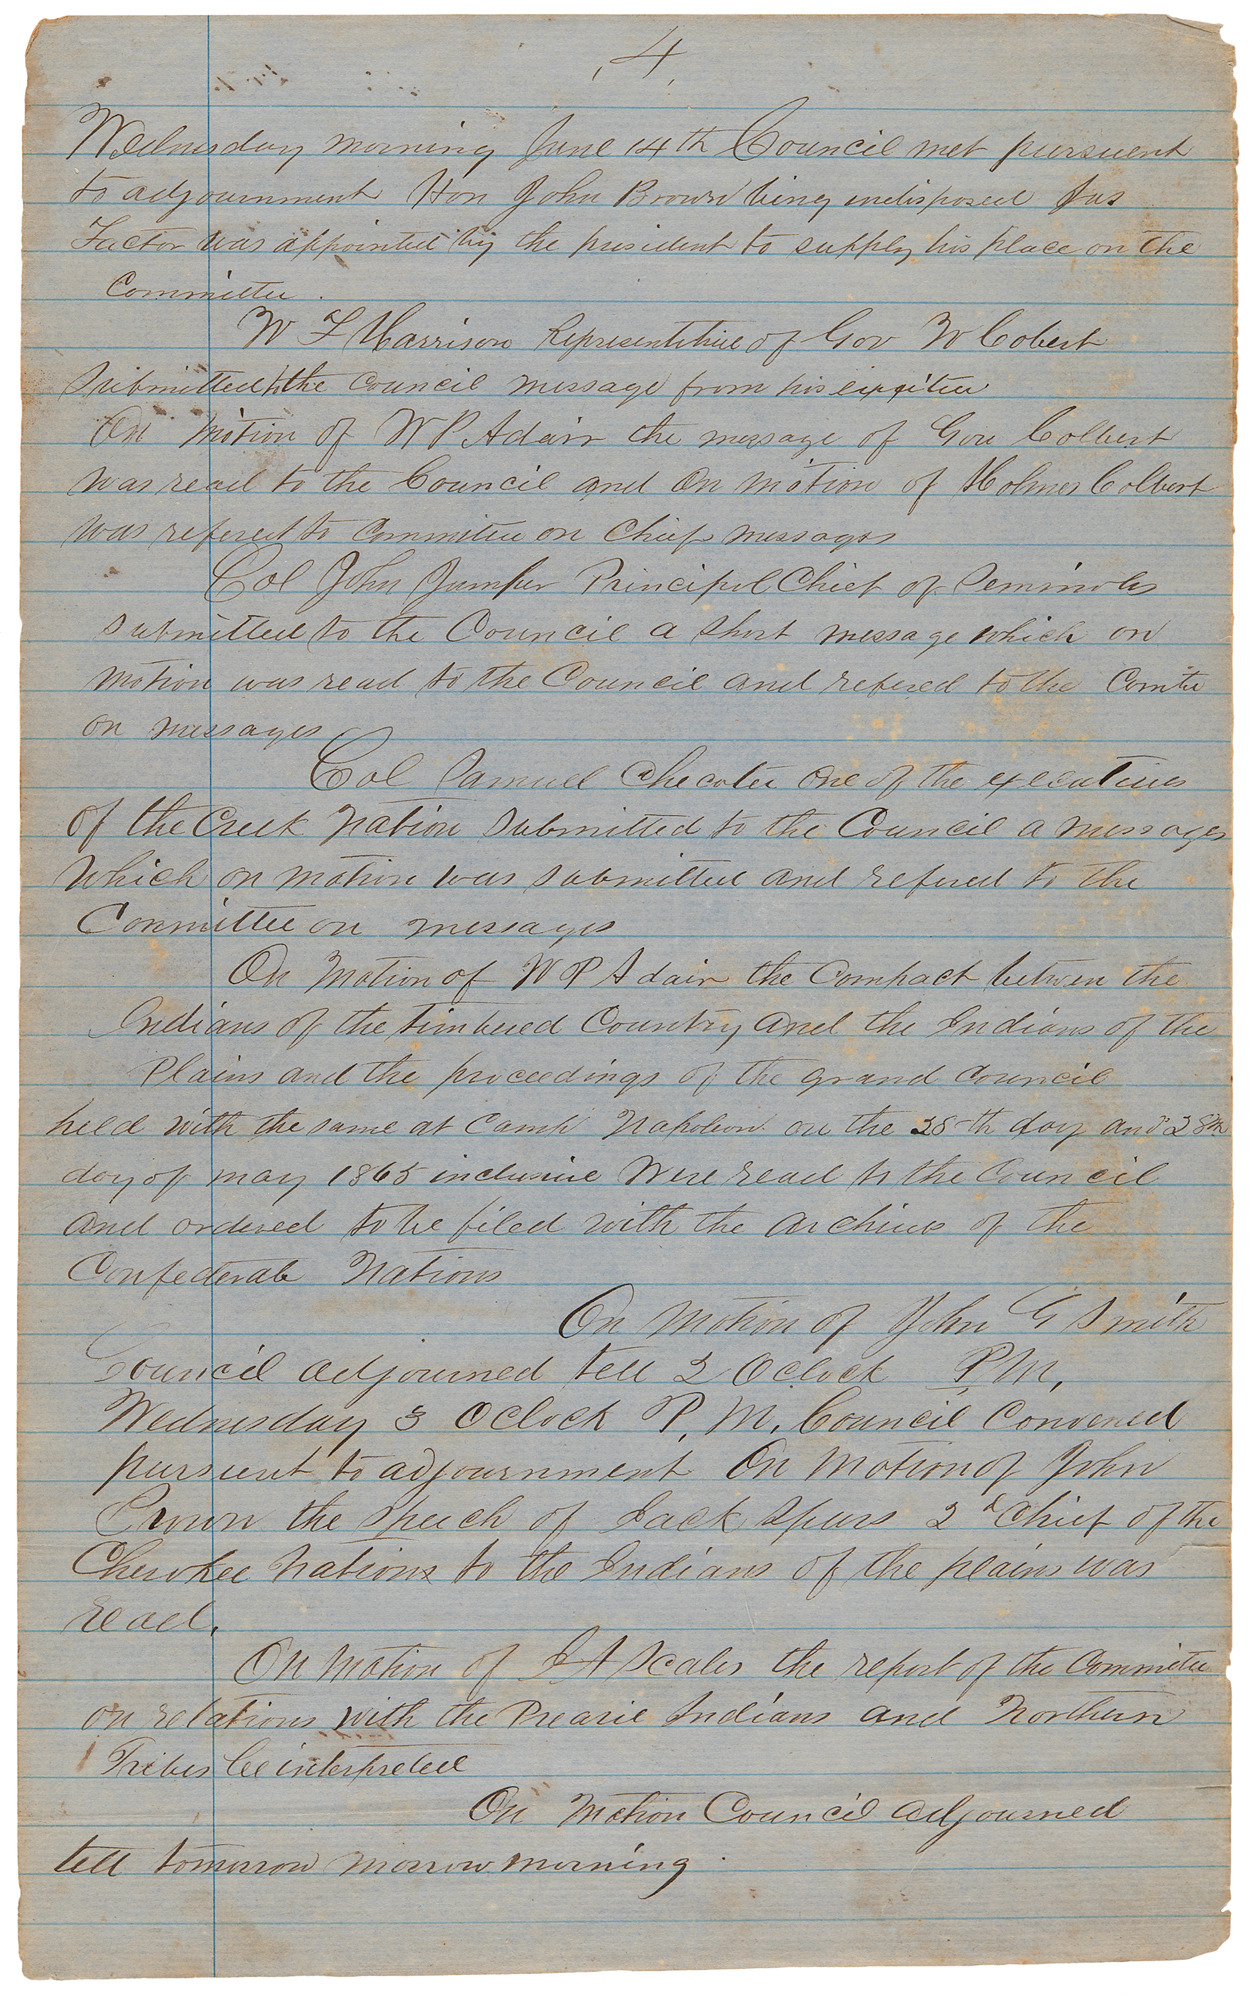 4
Wednesday morning June 14th Council met pursuent
to adjournment Hon John Brown being indisposed Jas
Factor was appointed by the president to supply his place on the
Committee.
W F Harrison Representitive of Gov W Cobert
Submitted to the Council message from his
On Motion of W P Adair the message of Gov Colbert
was read to the Council and On Motion of Holmes Colbert
was refered to Committee on Chief messages
Col John Jumper Principel Chief of Seminoles
submitted to the Council a short message which on
motion was read to the Council and refered to the Comtee
on messages
Col Samuel Checotee One of the executives
of the Creek Nation submitted to the Council a messages
Which on motion was submitted and refered to the
Committee on messages
On Motion of W P Adair the Compact between the
Indians of the timbered Country and the Indians of the
Plains and the proceedings of the grand Council
held with the same at Camp Napoleon on the 25th day and 28th
day of may 1865 inclusive Were read to the Council
and ordered to be filed with the archives of the
Confederate Nations
On Motion of John G Smith
Council adjourned tell 3 Oclock P.M.
Wednesday 3 Oclock P.M. Council Convened
pursuent to adjournment On Motion of John
the speech of Jack Spears 2d Chief of the
Cherokee Nations to the Indians of the plains was
read.
On Motion of J A Scales the report of the Committee
on relations with the Prearie Indians and Northern
Tribes be interpreted
On Motion Council adjourned
tell tomorrow morrow morning.